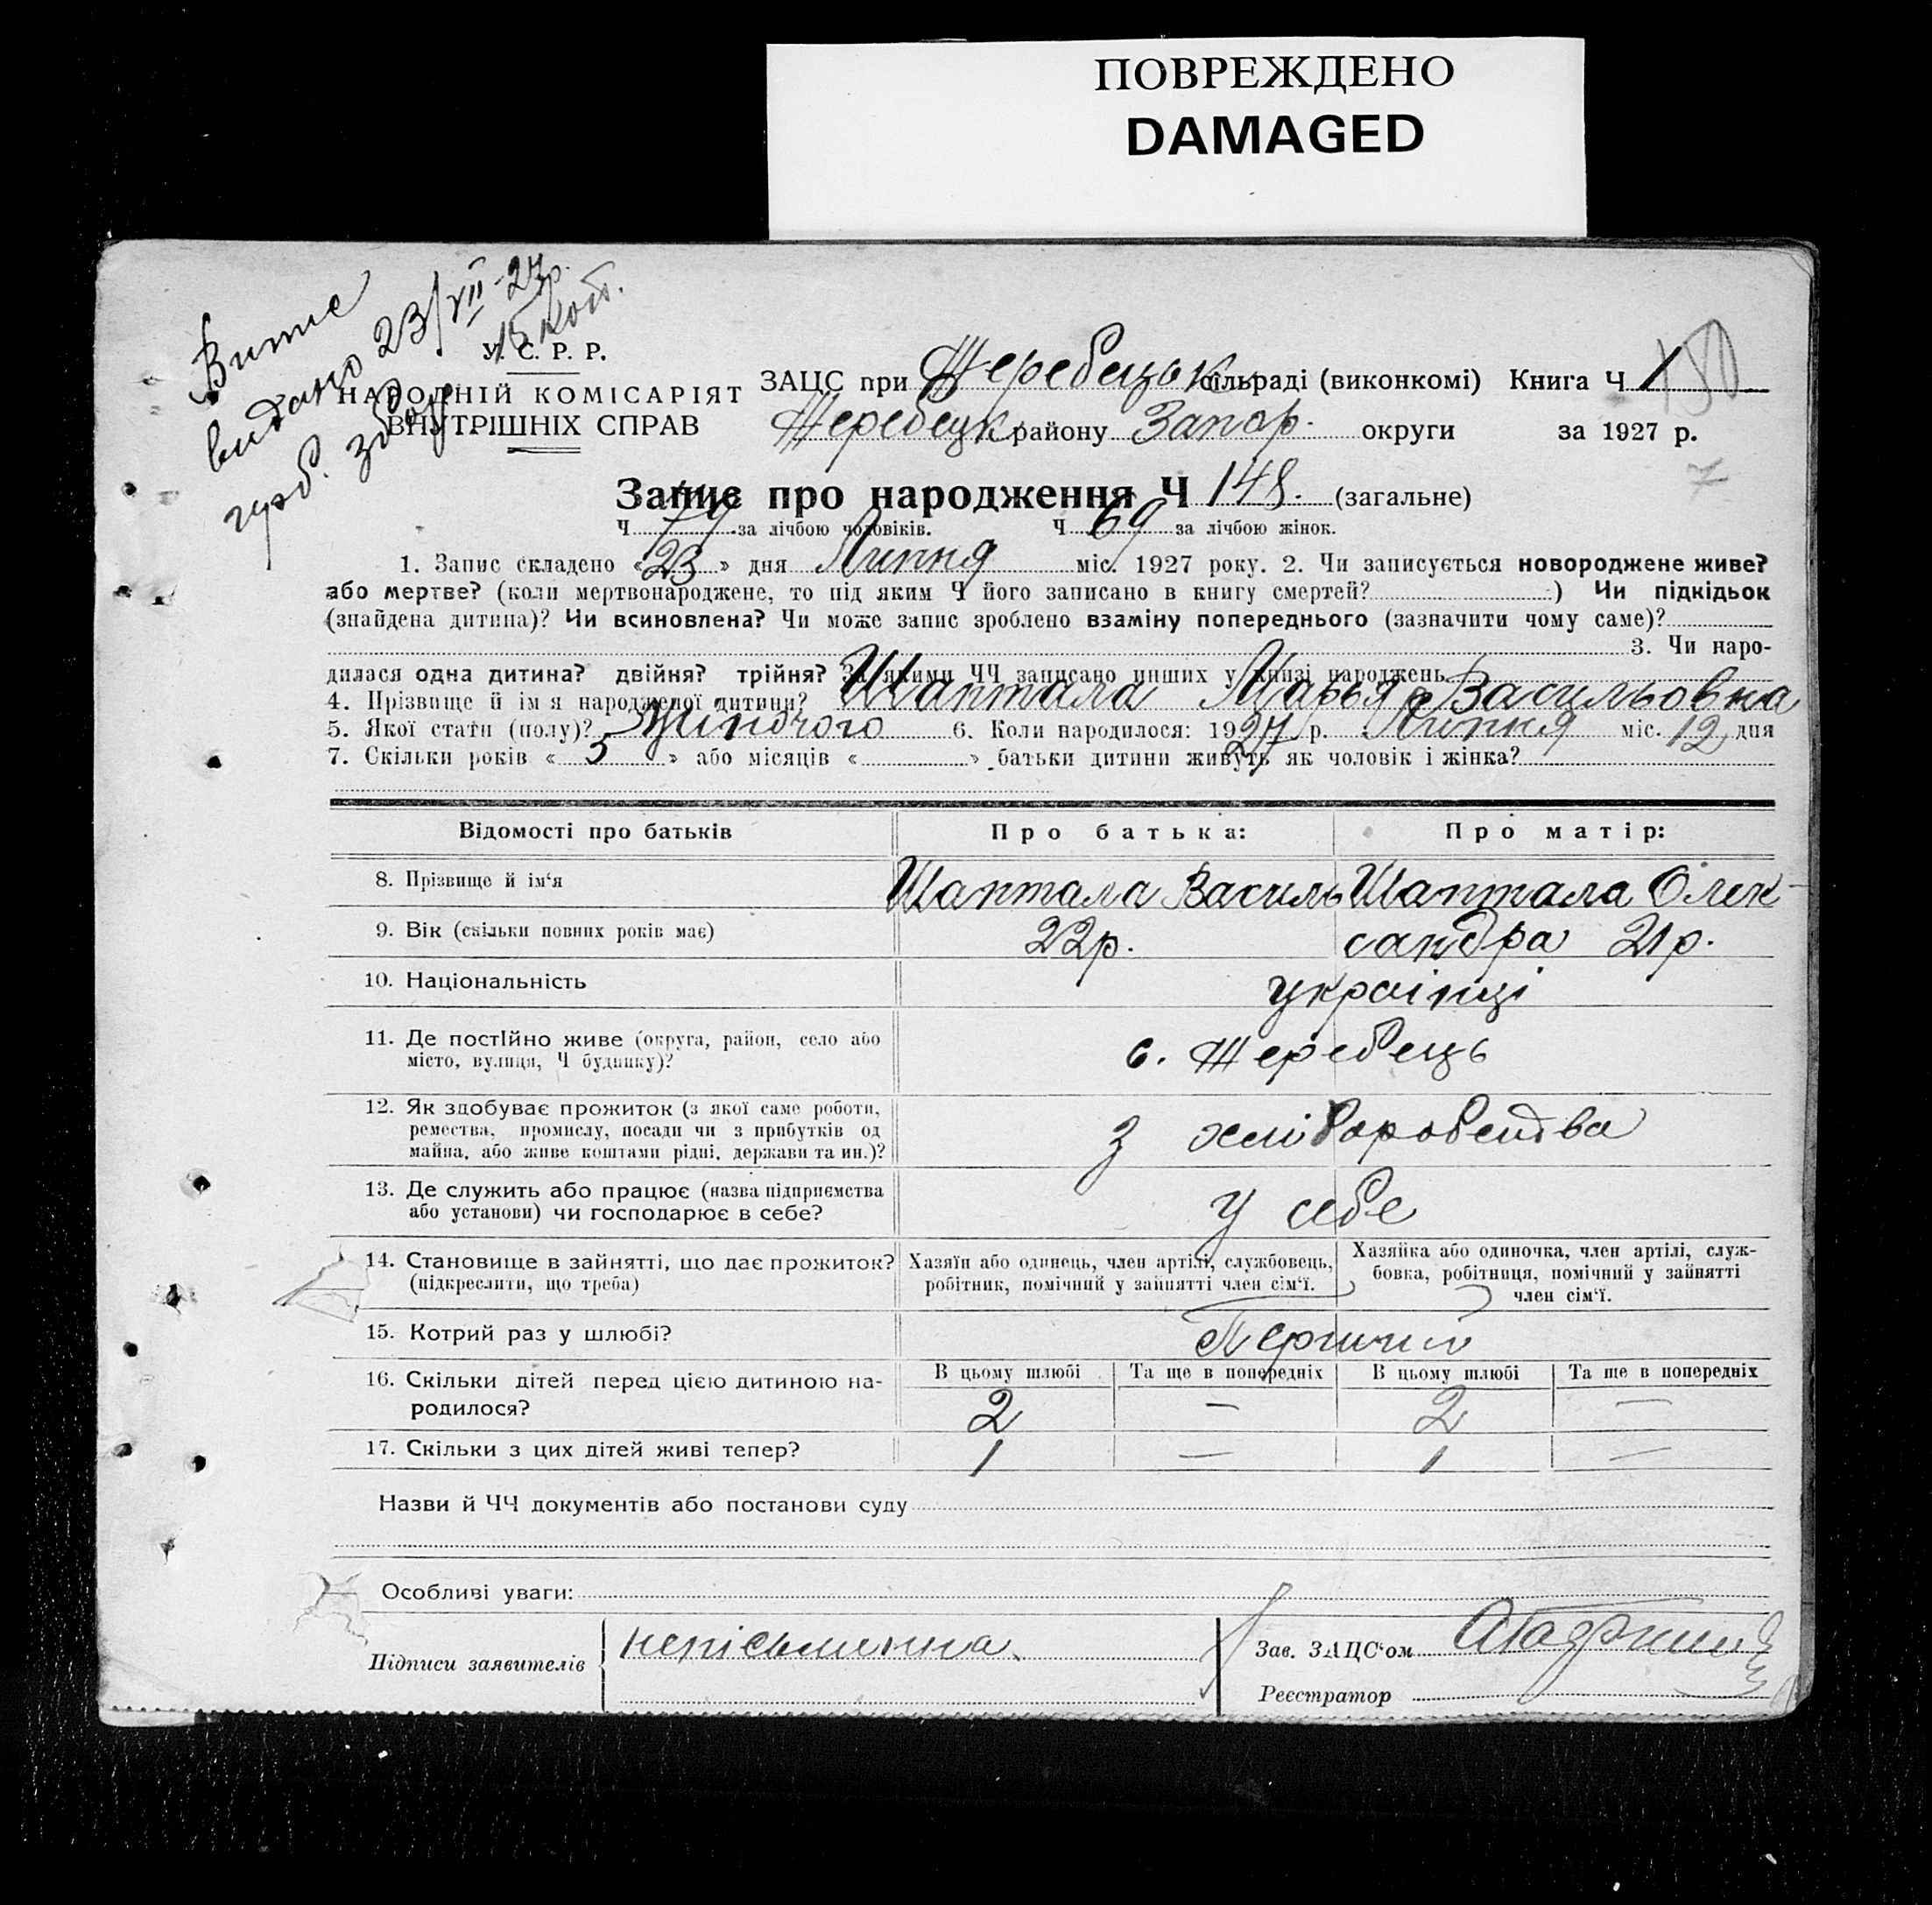 ПОВРЕЖДЕНО
DAMAGED
Витис
видано 23/VII-27р.
герб. збор 15 коп.
У. С. Р. Р.
НАРОДНІЙ КОМІСАРІЯТ
ВНУТРІШНІХ СПРАВ
ЗАЦС при Жеребецьк сільраді (виконкомі) Книга Ч 1
Жеребецьк району Запор. округи за 1927 р.
7
Запис про народження Ч 148. (загальне)
Ч 79 за лічбою чоловіків. Ч 69 за лічбою жінок.
1. Запис складено «23» дня Липня міс. 1927 року. 2. Чи записується новороджене живе?
або мертве? (коли мертвонароджене, то під яким Ч його записано в книгу смертей? ) Чи підкідьок
(знайдена дитина)? Чи всиновлена? Чи може запис зроблено взаміну попереднього (зазначити чому саме)?
3. Чи наро-
дилася одна дитина? двійня? трійня? За якими ЧЧ записано инших у книзі народжень
4. Прізвище й ім'я народженої дитини? Шаптала Марья Васильовна
5. Якої стати (полу)? Жіночого 6. Коли народилося: 1927 р. Липня міс. 12 дня
7. Скільки років «3» або місяців « » батьки дитини живуть як чоловік і жінка?
Відомості про батьків Про батька: Про матір:
8. Прізвище й ім'я Шаптала Василь Шаптала Олек-
9. Вік (скільки повних років має) 22р. сандра 21р.
10. Національність українці
11. Де постійно живе (округа, район, село або
місто, вулиця, Ч будинку)? с. Жеребець
12. Як здобуває прожиток (з якої саме роботи,
ремества, промислу, посади чи з прибутків од
майна, або живе коштами рідні, держави та ин.)? з хліборобства
13. Де служить або працює (назва підприємства
або установи) чи господарює в себе? У себе
14. Становище в зайнятті, що дає прожиток?
(підкреслити, що треба)
Хазяїн або одинець, член артілі, службовець,
робітник, помічний у зайнятті член сім'ї.
Хазяйка або одиночка, член артілі, служ-
бовка, робітниця, помічний у зайнятті
член сім'ї.
15. Котрий раз у шлюбі? Перший
16. Скільки дітей перед цією дитиною на-
родилося?
В цьому шлюбі Та ще в попередніх В цьому шлюбі Та ще в попередніх
2 — 2 —
17. Скільки з цих дітей живі тепер? 1 — 1 —
Назви й ЧЧ документів або постанови суду
Особливі уваги:
Підписи заявителів непісьминна
Зав. ЗАЦС'ом
Реєстратор